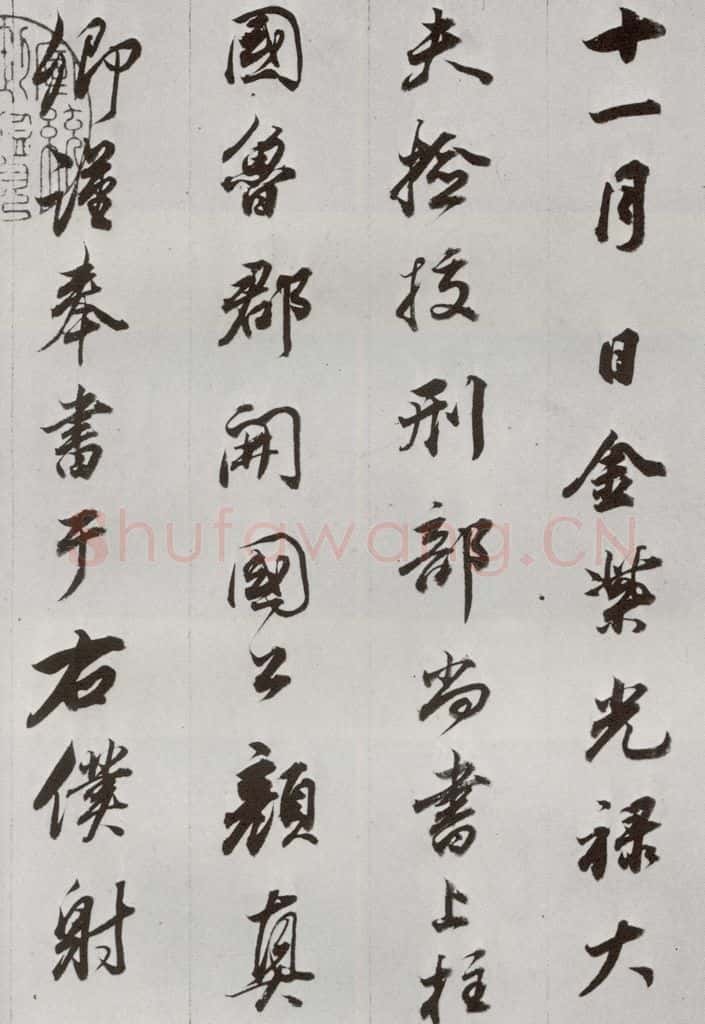 十一月日金紫光禄大
夫撿挍刑部尚書上柱
國魯郡開國公顏真
卿謹奉書于右僕射
Shufawang.CN